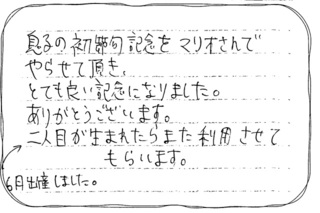 息子の初節句記念をマリオさんで
やらせて頂き、
とても良い記念になりました。
ありがとうございます。
二人目が生まれたらまた利用させて
もらいます。
6月出産しました。